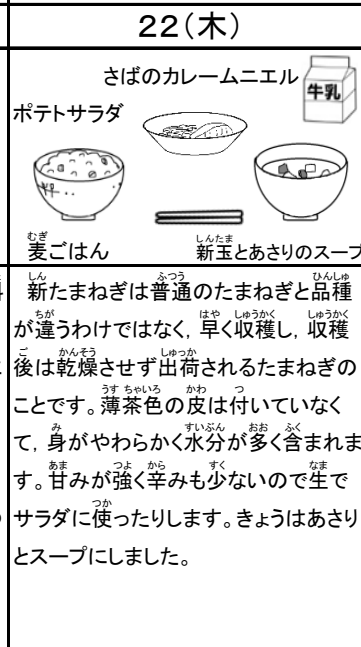 22(木)
さばのカレームニエル
牛乳
ポテトサラダ
麦ごはん
新玉とあさりのスープ
新たまねぎは普通のたまねぎと品種
が違うわけではなく，早く収穫し，収穫
後は乾燥させず出荷されるたまねぎの
ことです。薄茶色の皮は付いていなく
て，身がやわらかく水分が多く含まれま
す。甘みが強く辛みも少ないので生で
サラダに使ったりします。きょうはあさり
とスープにしました。